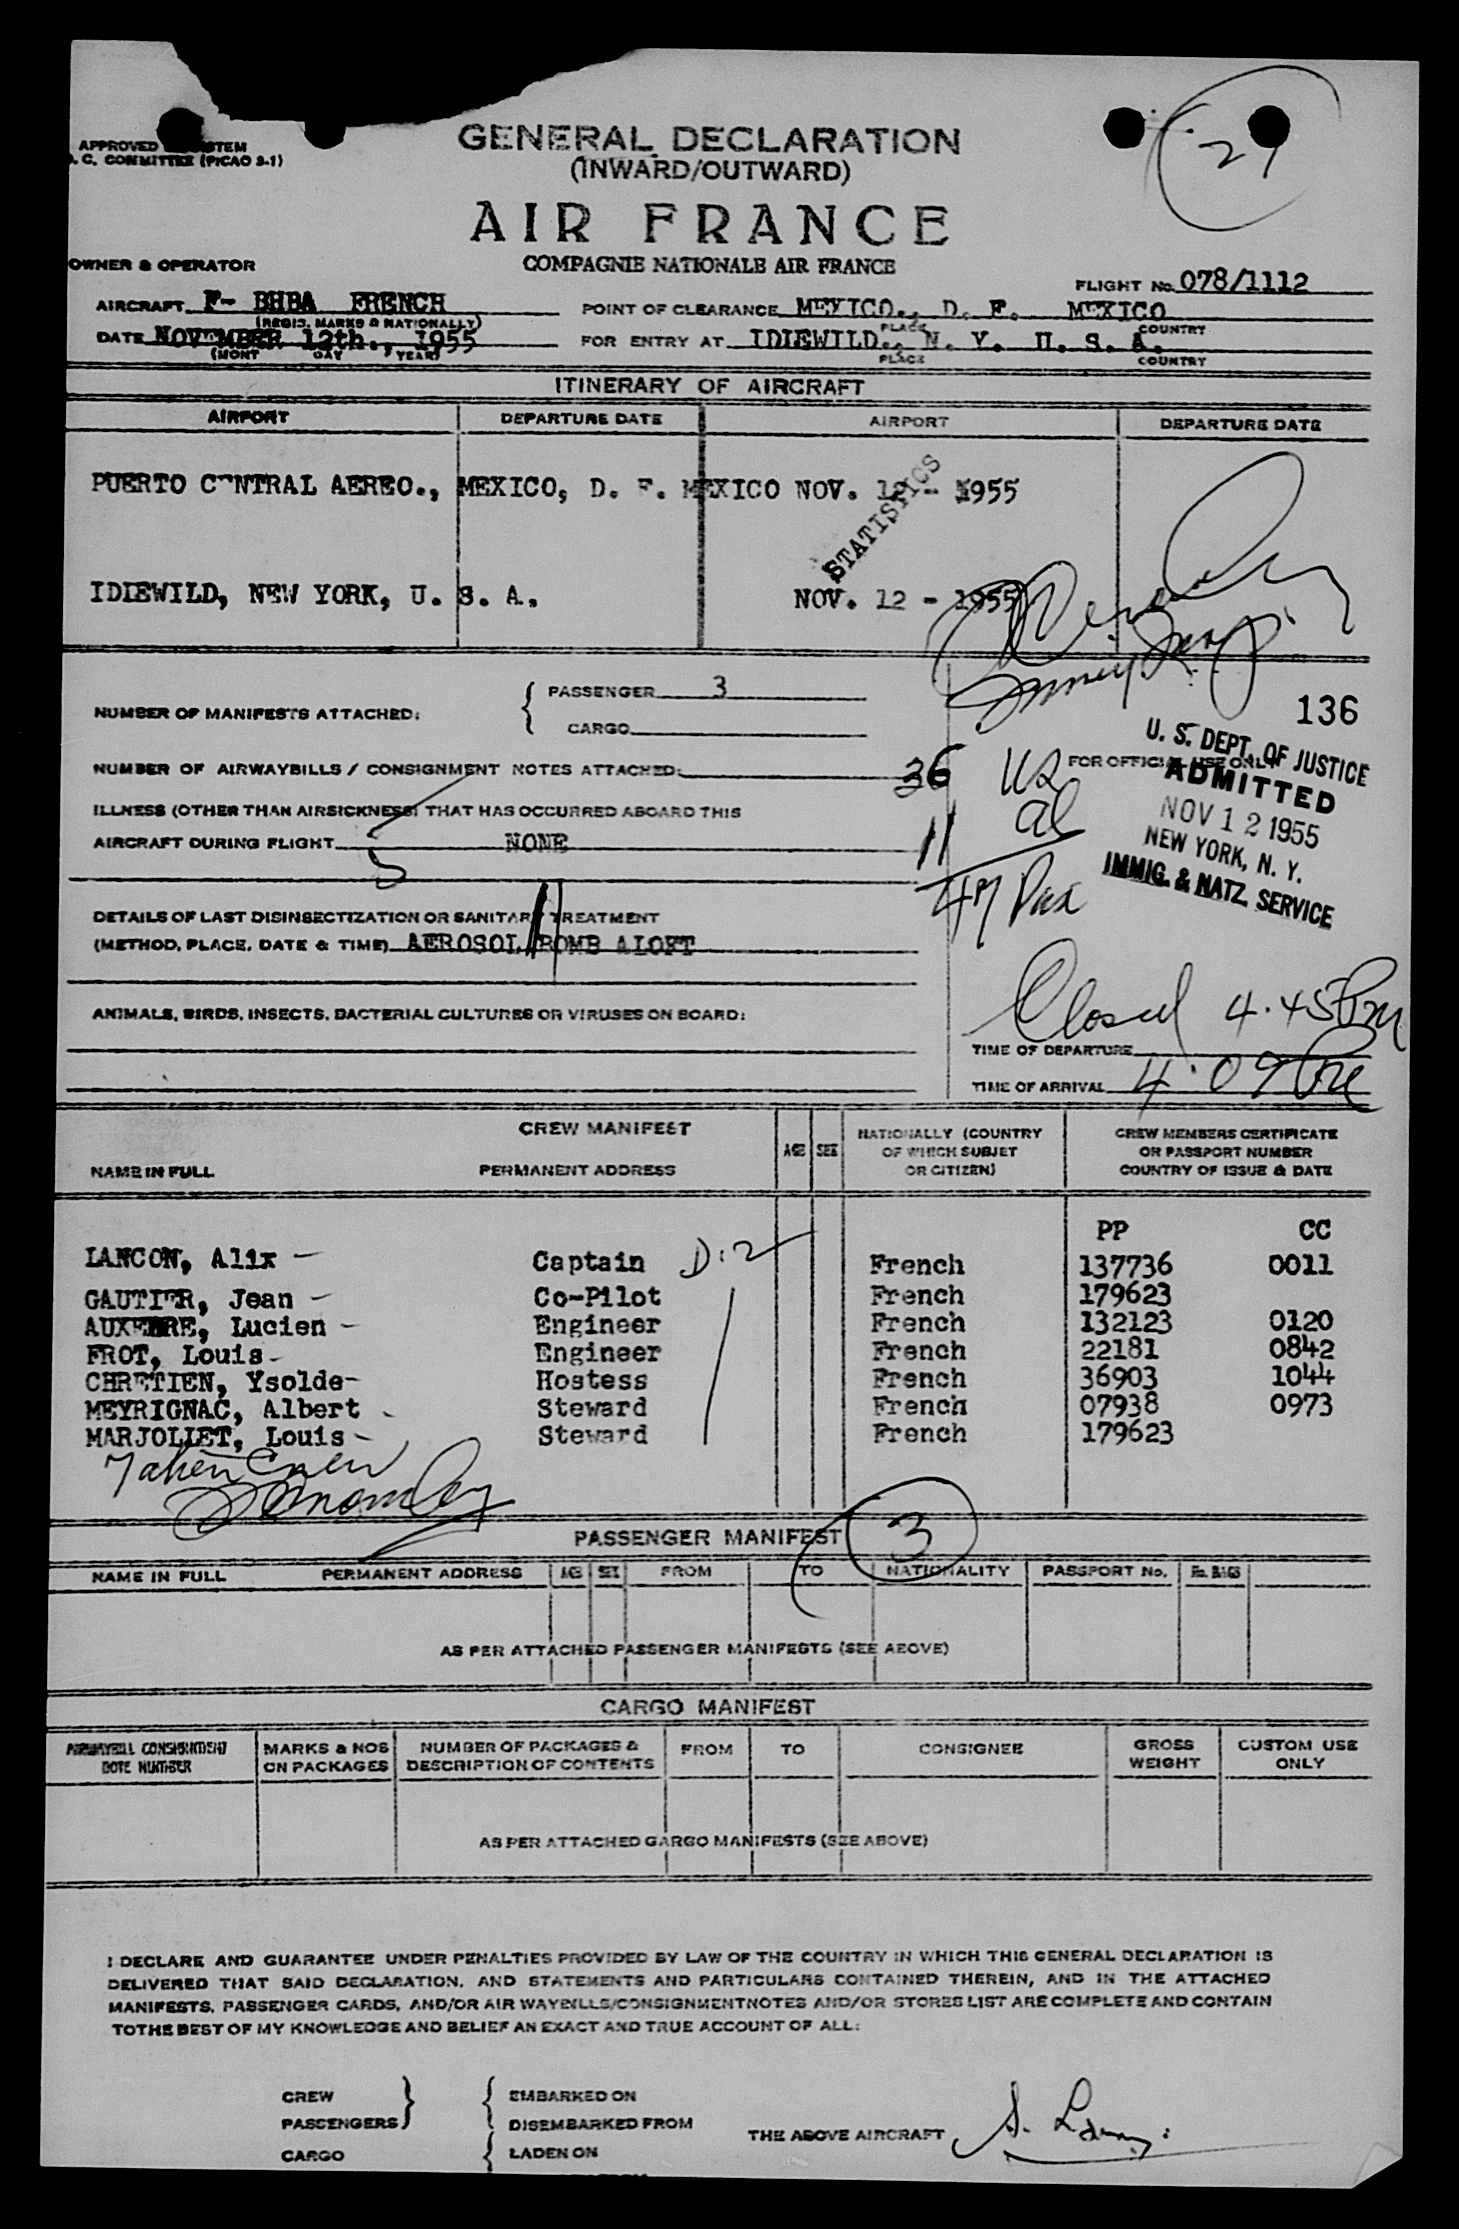 GENERAL DECLARATION
(INWARD/OUTWARD)
27
APPROVED
C. COMMITTEE (PICAO 9-1)
AIR FRANCE
COMPAGNIE NATIONALE AIR FRANCE
OWNER & OPERATOR
FLIGHT No. 078/1112
AIRCRAFT F- BHBA FRENCH
(REGIS. MARKS & NATIONALLY)
POINT OF CLEARANCE MEXICO., D. F. MEXICO
PLACE COUNTRY
DATE NOVEMBER 12th., 1955
(MONT DAY YEAR)
FOR ENTRY AT IDIEWILD., N. Y. U. S. A.
PLACE COUNTRY
ITINERARY OF AIRCRAFT
AIRPORT DEPARTURE DATE AIRPORT DEPARTURE DATE
PUERTO CENTRAL AEREO., MEXICO, D. F. MEXICO NOV. 12 - 1955
STATISTICS
IDIEWILD, NEW YORK, U. S. A. NOV. 12 - 1955
NUMBER OF MANIFESTS ATTACHED:
PASSENGER 3
CARGO
136
NUMBER OF AIRWAYBILLS / CONSIGNMENT NOTES ATTACHED:
FOR OFFICIAL USE ONLY
U. S. DEPT. OF JUSTICE
ADMITTED
NOV 12 1955
NEW YORK, N. Y.
IMMIG. & NATZ. SERVICE
36 US
11 al
47 Pax
ILLNESS (OTHER THAN AIRSICKNESS) THAT HAS OCCURRED ABOARD THIS
AIRCRAFT DURING FLIGHT NONE
DETAILS OF LAST DISINSECTIZATION OR SANITARY TREATMENT
(METHOD, PLACE, DATE & TIME) AEROSOL BOMB ALOFT
ANIMALS, BIRDS, INSECTS, BACTERIAL CULTURES OR VIRUSES ON BOARD:
Closed 4.45 Pm
TIME OF DEPARTURE
TIME OF ARRIVAL 4.09 Pm
CREW MANIFEST
NAME IN FULL PERMANENT ADDRESS AGE SEX
NATIONALLY (COUNTRY
OF WHICH SUBJET
OR CITIZEN)
CREW MEMBERS CERTIFICATE
OR PASSPORT NUMBER
COUNTRY OF ISSUE & DATE
PP CC
LANCON, Alix - Captain D:2 French 137736 0011
GAUTIER, Jean - Co-Pilot French 179623
AUXERRE, Lucien - Engineer French 132123 0120
FROT, Louis - Engineer French 22181 0842
CHRETIEN, Ysolde - Hostess French 36903 1044
MEYRIGNAC, Albert - Steward French 07938 0973
MARJOLLET, Louis - Steward French 179623
PASSENGER MANIFEST 3
NAME IN FULL PERMANENT ADDRESS AGE SEX FROM TO NATIONALITY PASSPORT No. No. BAGS
AS PER ATTACHED PASSENGER MANIFESTS (SEE ABOVE)
CARGO MANIFEST
AIRWAYBILL CONSIGNMENT
NOTE NUMBER
MARKS & NOS
ON PACKAGES
NUMBER OF PACKAGES &
DESCRIPTION OF CONTENTS
FROM TO CONSIGNEE
GROSS
WEIGHT
CUSTOM USE
ONLY
AS PER ATTACHED CARGO MANIFESTS (SEE ABOVE)
I DECLARE AND GUARANTEE UNDER PENALTIES PROVIDED BY LAW OF THE COUNTRY IN WHICH THIS GENERAL DECLARATION IS
DELIVERED THAT SAID DECLARATION, AND STATEMENTS AND PARTICULARS CONTAINED THEREIN, AND IN THE ATTACHED
MANIFESTS, PASSENGER CARDS, AND/OR AIR WAYBILLS/CONSIGNMENTNOTES AND/OR STORES LIST ARE COMPLETE AND CONTAIN
TOTHE BEST OF MY KNOWLEDGE AND BELIEF AN EXACT AND TRUE ACCOUNT OF ALL:
CREW EMBARKED ON
PASSENGERS DISEMBARKED FROM
THE ABOVE AIRCRAFT
CARGO LADEN ON